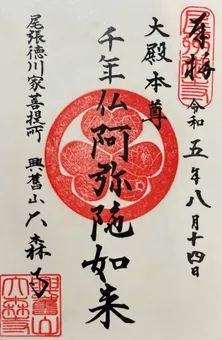 奉拝
令和五年八月十四日
大殿本尊
千年仏阿弥陀如来
尾張徳川家菩提所
興舊山大森寺